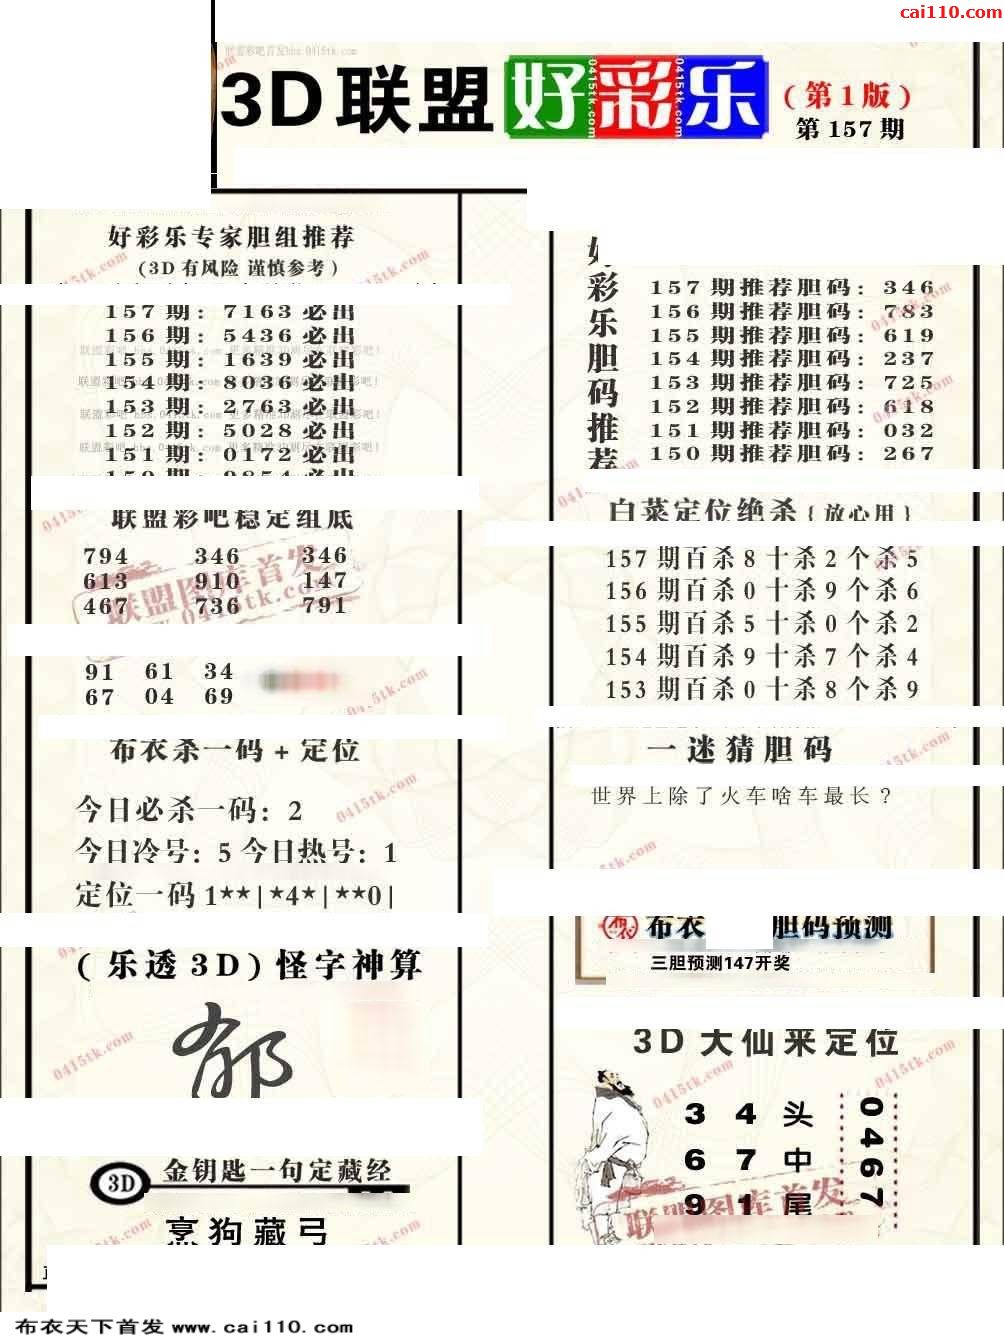 cai110.com
3D联盟好彩乐
(第1版)
第157期
好彩乐专家胆组推荐
(3D有风险 谨慎参考)
157期: 7163必出
156期: 5436必出
155期: 1639必出
154期: 8036必出
153期: 2763必出
152期: 5028必出
151期: 0172必出
联盟彩吧稳定组底
794 346 346
613 910 147
467 736 791
91 61 34
67 04 69
布衣杀一码+定位
今日必杀一码: 2
今日冷号: 5 今日热号: 1
定位一码1**|*4*|**0|
(乐透3D)怪字神算
郁
3D
金钥匙一句定藏经
烹狗藏弓
好彩乐胆码推荐
157期推荐胆码: 346
156期推荐胆码: 783
155期推荐胆码: 619
154期推荐胆码: 237
153期推荐胆码: 725
152期推荐胆码: 618
151期推荐胆码: 032
150期推荐胆码: 267
白菜定位绝杀{放心用}
157期百杀8十杀2个杀5
156期百杀0十杀9个杀6
155期百杀5十杀0个杀2
154期百杀9十杀7个杀4
153期百杀0十杀8个杀9
一迷猜胆码
世界上除了火车啥车最长?
布衣 胆码预测
三胆预测147开奖
3D大仙来定位
3 4 头
6 7 中
9 1 尾
0467
联盟图库首发
0415tk.com
布衣天下首发 www.cai110.com